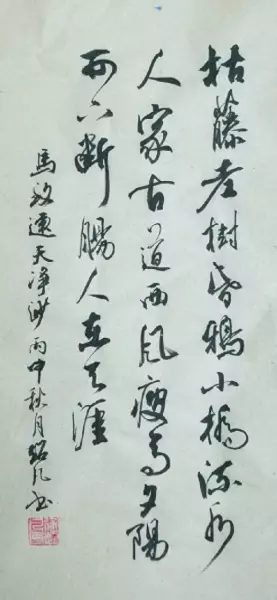 枯藤老樹昏鴉小橋流水
人家古道西風瘦馬夕陽
西下斷腸人在天涯
馬致遠天淨沙丙申秋月紹凡書